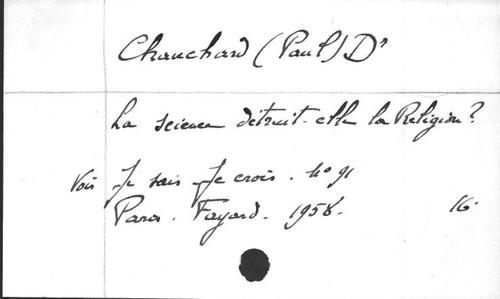 Chauchard (Paul) Dr
La science détruit-elle la Religion?
Voir Je sais Je crois. No 91
Paris. Fayard. 1958. 16.